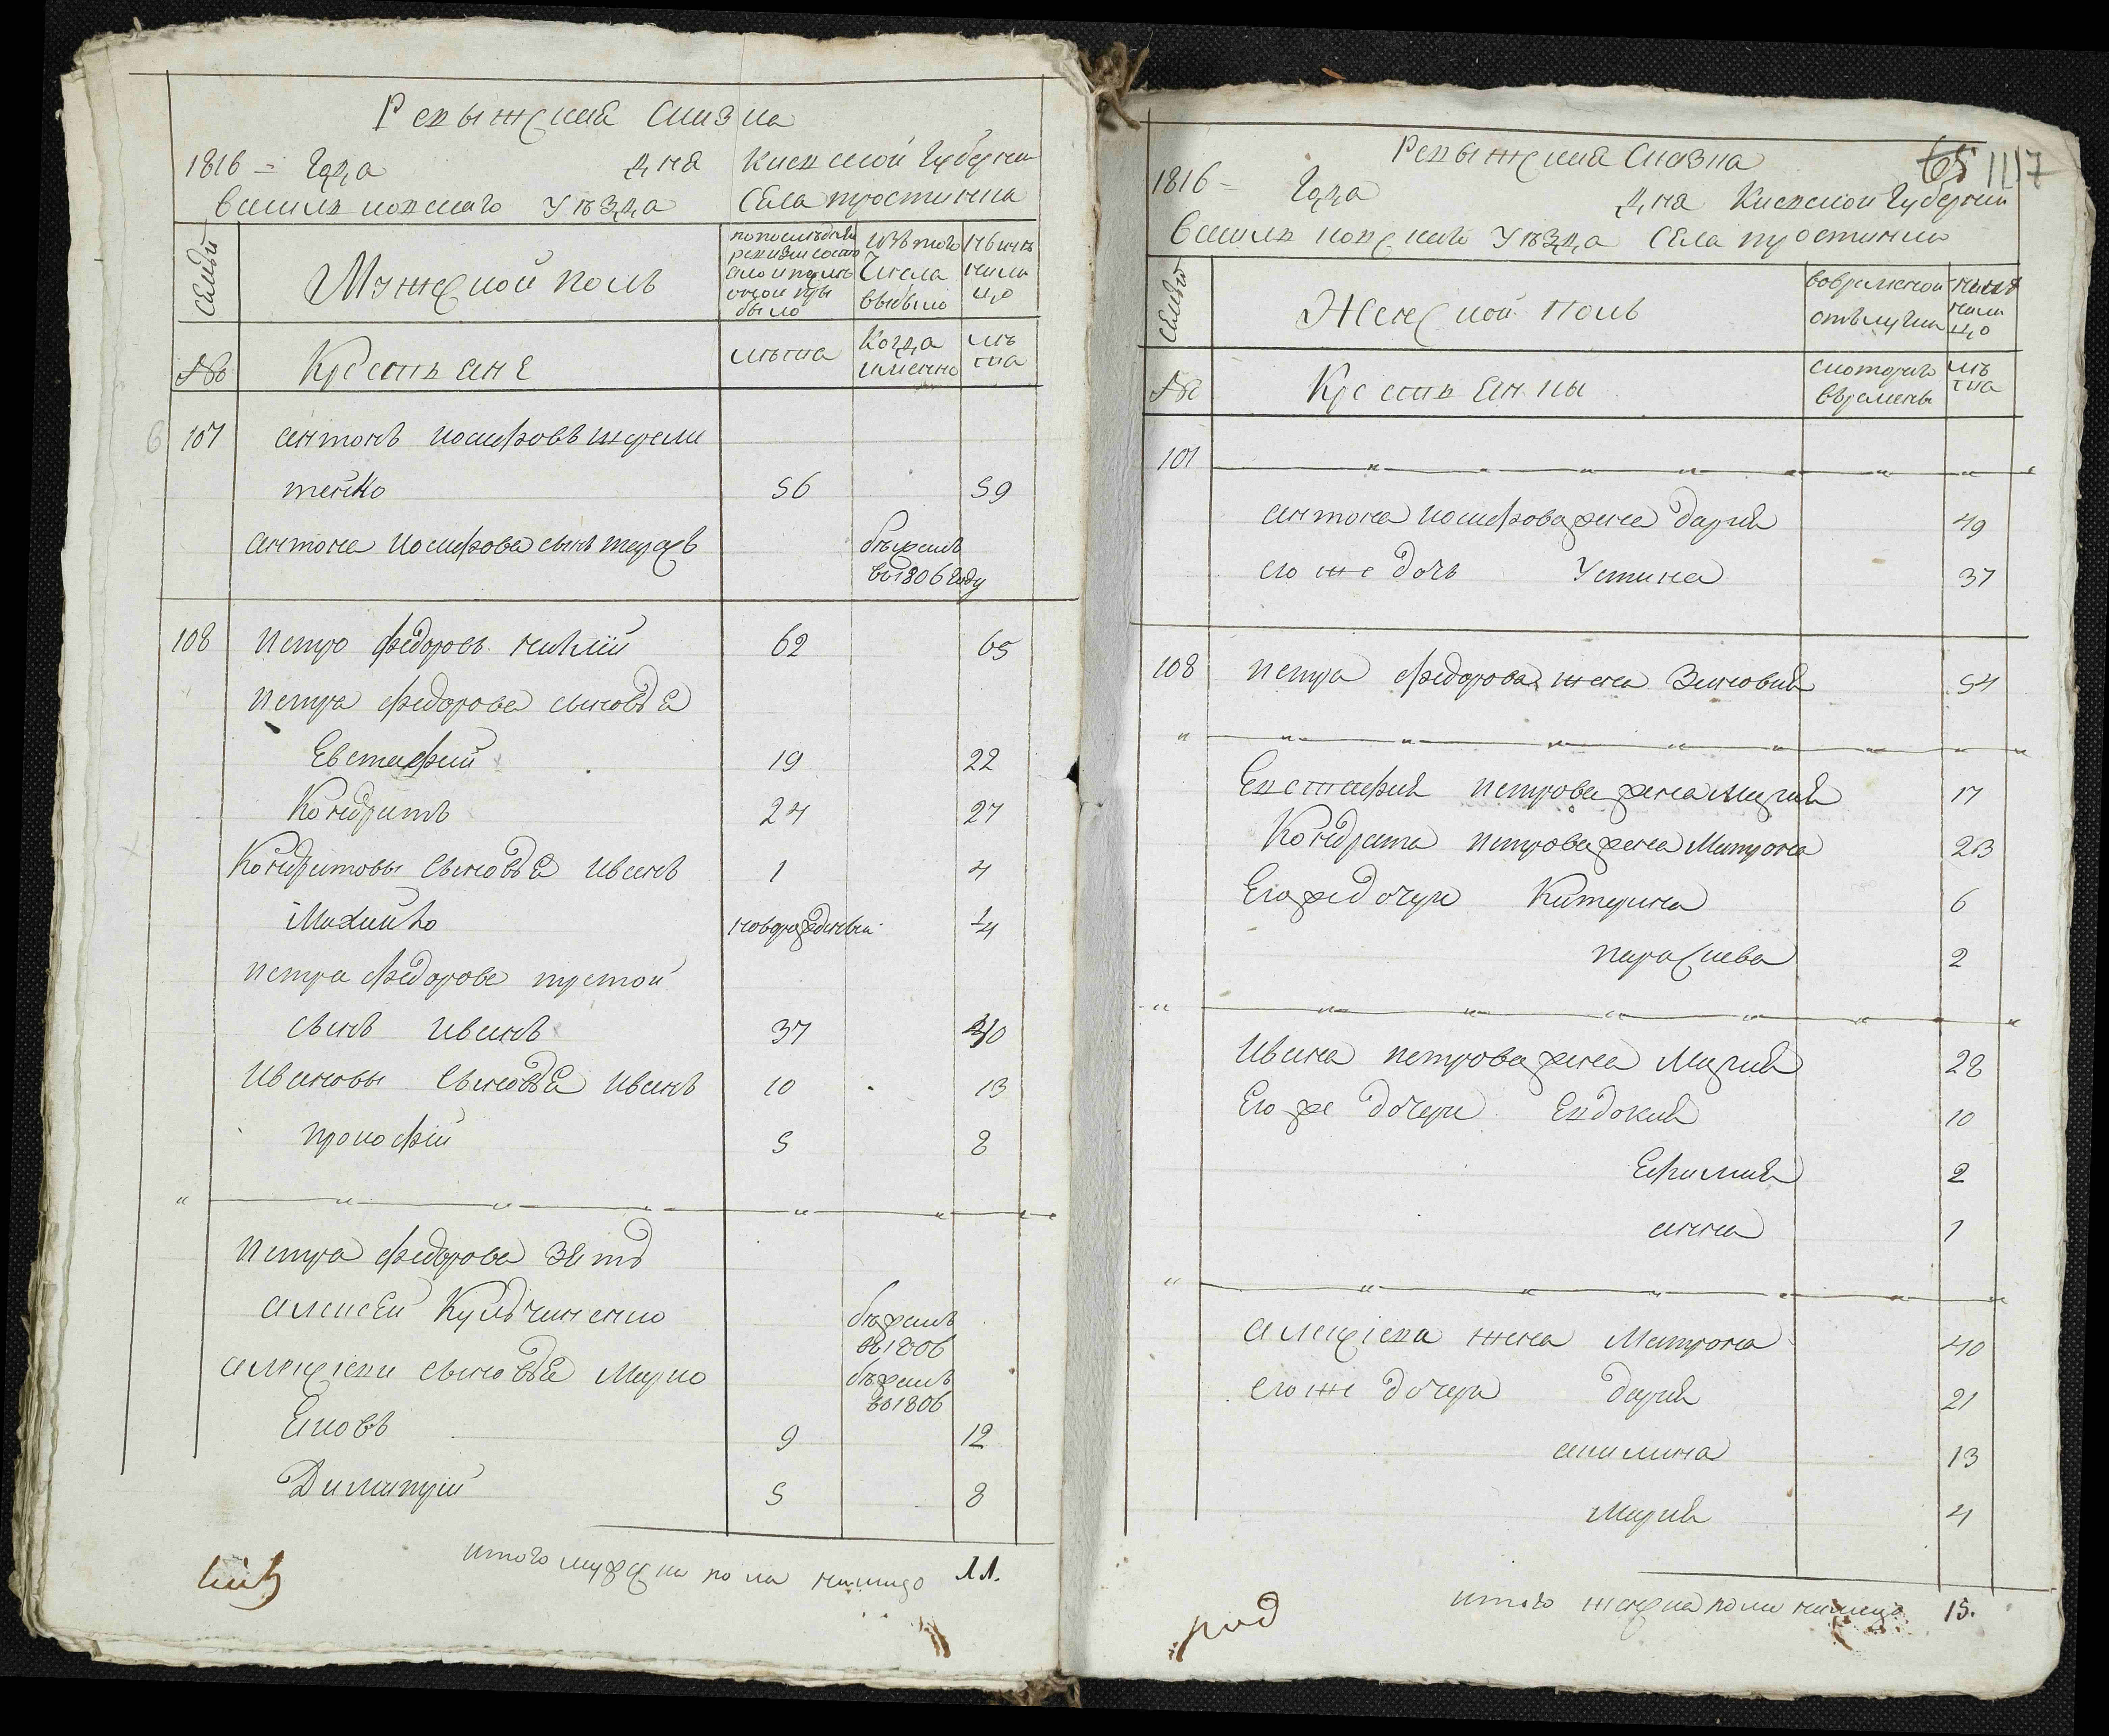 Ревыжская Сказка
1816 = Года дня Киевской Губернии
Васильковскаго Уѣзда Села Простинка
Семьи
Мужеской полъ
по последней ревизии состояло и после оной прибыло
Изъ того Числа выбыло
Нынѣ налицо
№
Крестьяне
лѣта
Когда именно
лѣта
107 антонъ иосифовъ
тенко 56 59
антона иосифова сынъ тарасъ бѣжалъ
въ 1806 году
108 петро федоровъ 62 65
петра федорова сыновья
Евстафий 19 22
Кондратъ 24 27
Кондратовы сыновья иванъ 1 4
Михайло новорожденны ¼
петра федорова третой
сынъ иванъ 37 40
ивановы сыновья иванъ 10 13
прокофий 5 8
петра федорова зять
алексей Кульчиненко бѣжалъ
въ 1806
алексѣеви сыновья Марко бѣжалъ
въ 1806
Яковъ 9 12
Димитрий 5 8
итого мужеска пола налицо 11.
65 1117
Ревыжская Сказка
1816 = Года дня Киевской Губернии
Васильковскаго Уѣзда Села Простинки
Семьи
Женской полъ
во временной отлучки
ныне налицо
№
Крестьянки
с которого времены
лѣта
107
антона иосифова жена дария 49
его же дочь Устина 37
108 петра федорова жена Зиновия 54
Евстафия петрова жена Мария 17
Кондрата петрова жена Матрона 23
Его же дочери Катерина 6
параскева 2
ивана петрова жена Мария 28
Его же дочери Евдокия 10
Ефимия 2
анна 1
алексѣева жена Матрона 40
его же дочери дария 21
акилина 13
Мария 4
итого женска пола налицо 15.